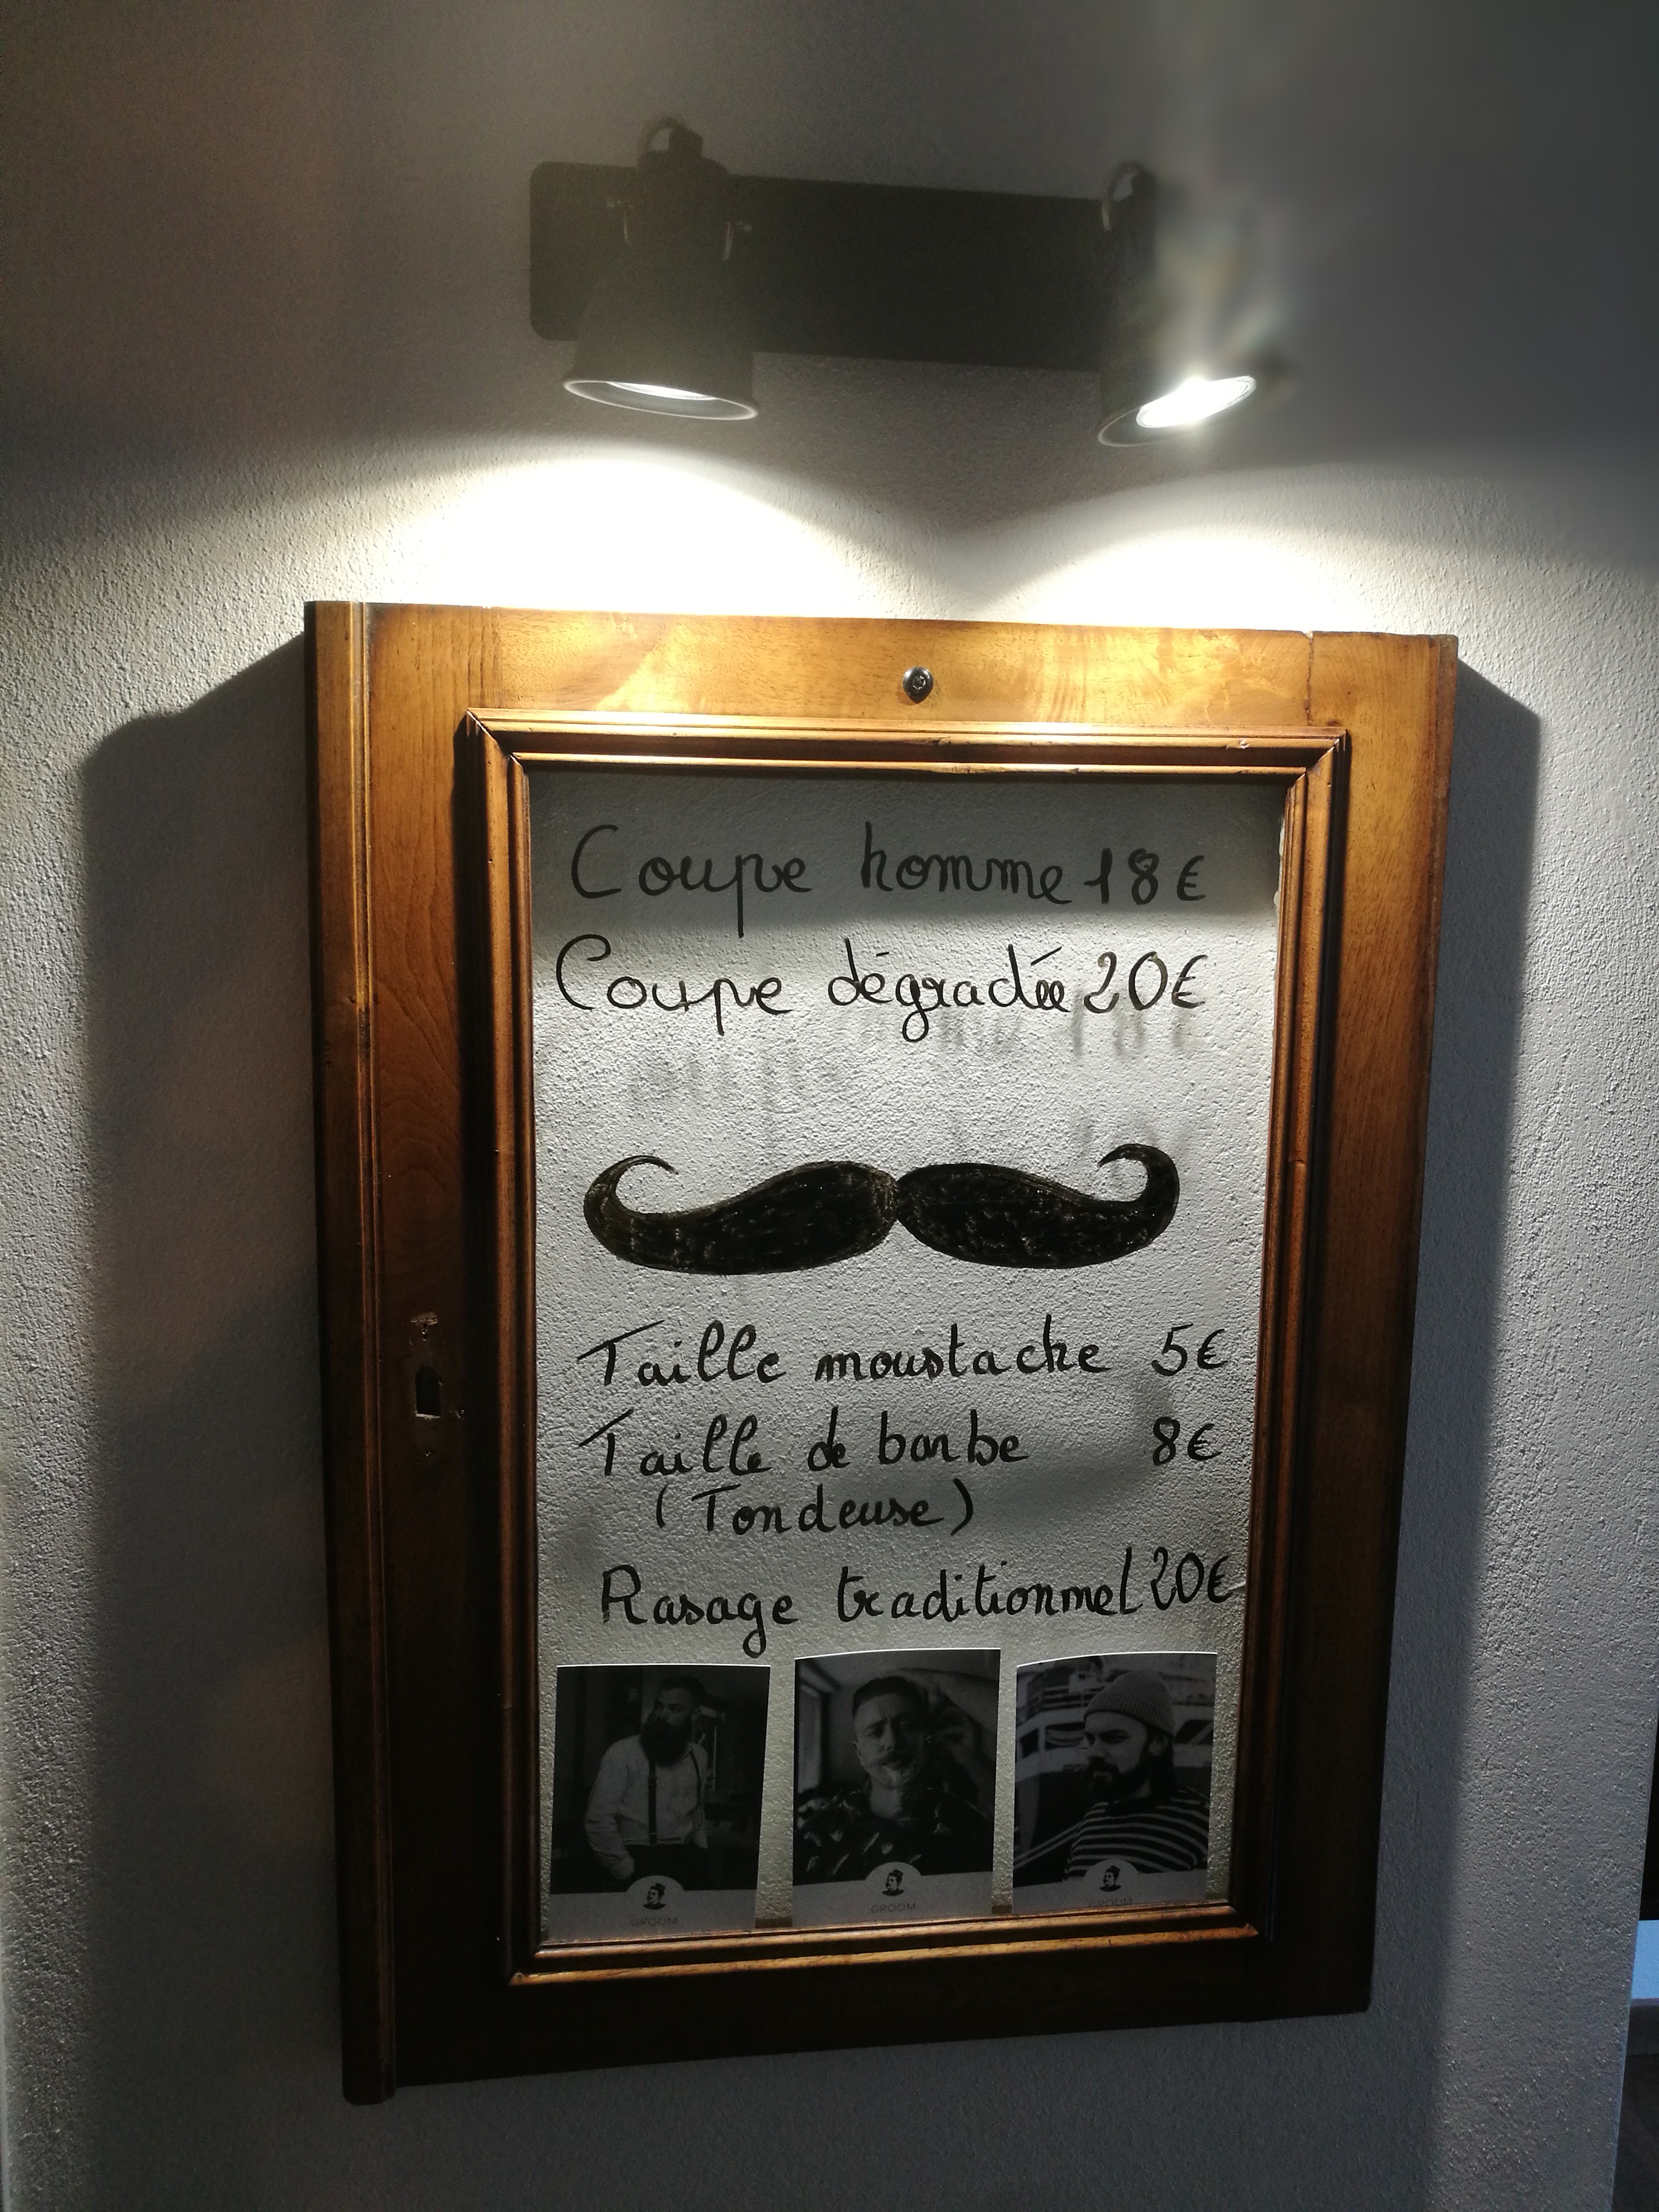 Coupe homme 18€
Coupe dégradée 20€
Taille moustache 5€
Taille de barbe 8€
(Tondeuse)
Rasage traditionnel 20€
GROOM
GROOM
GROOM